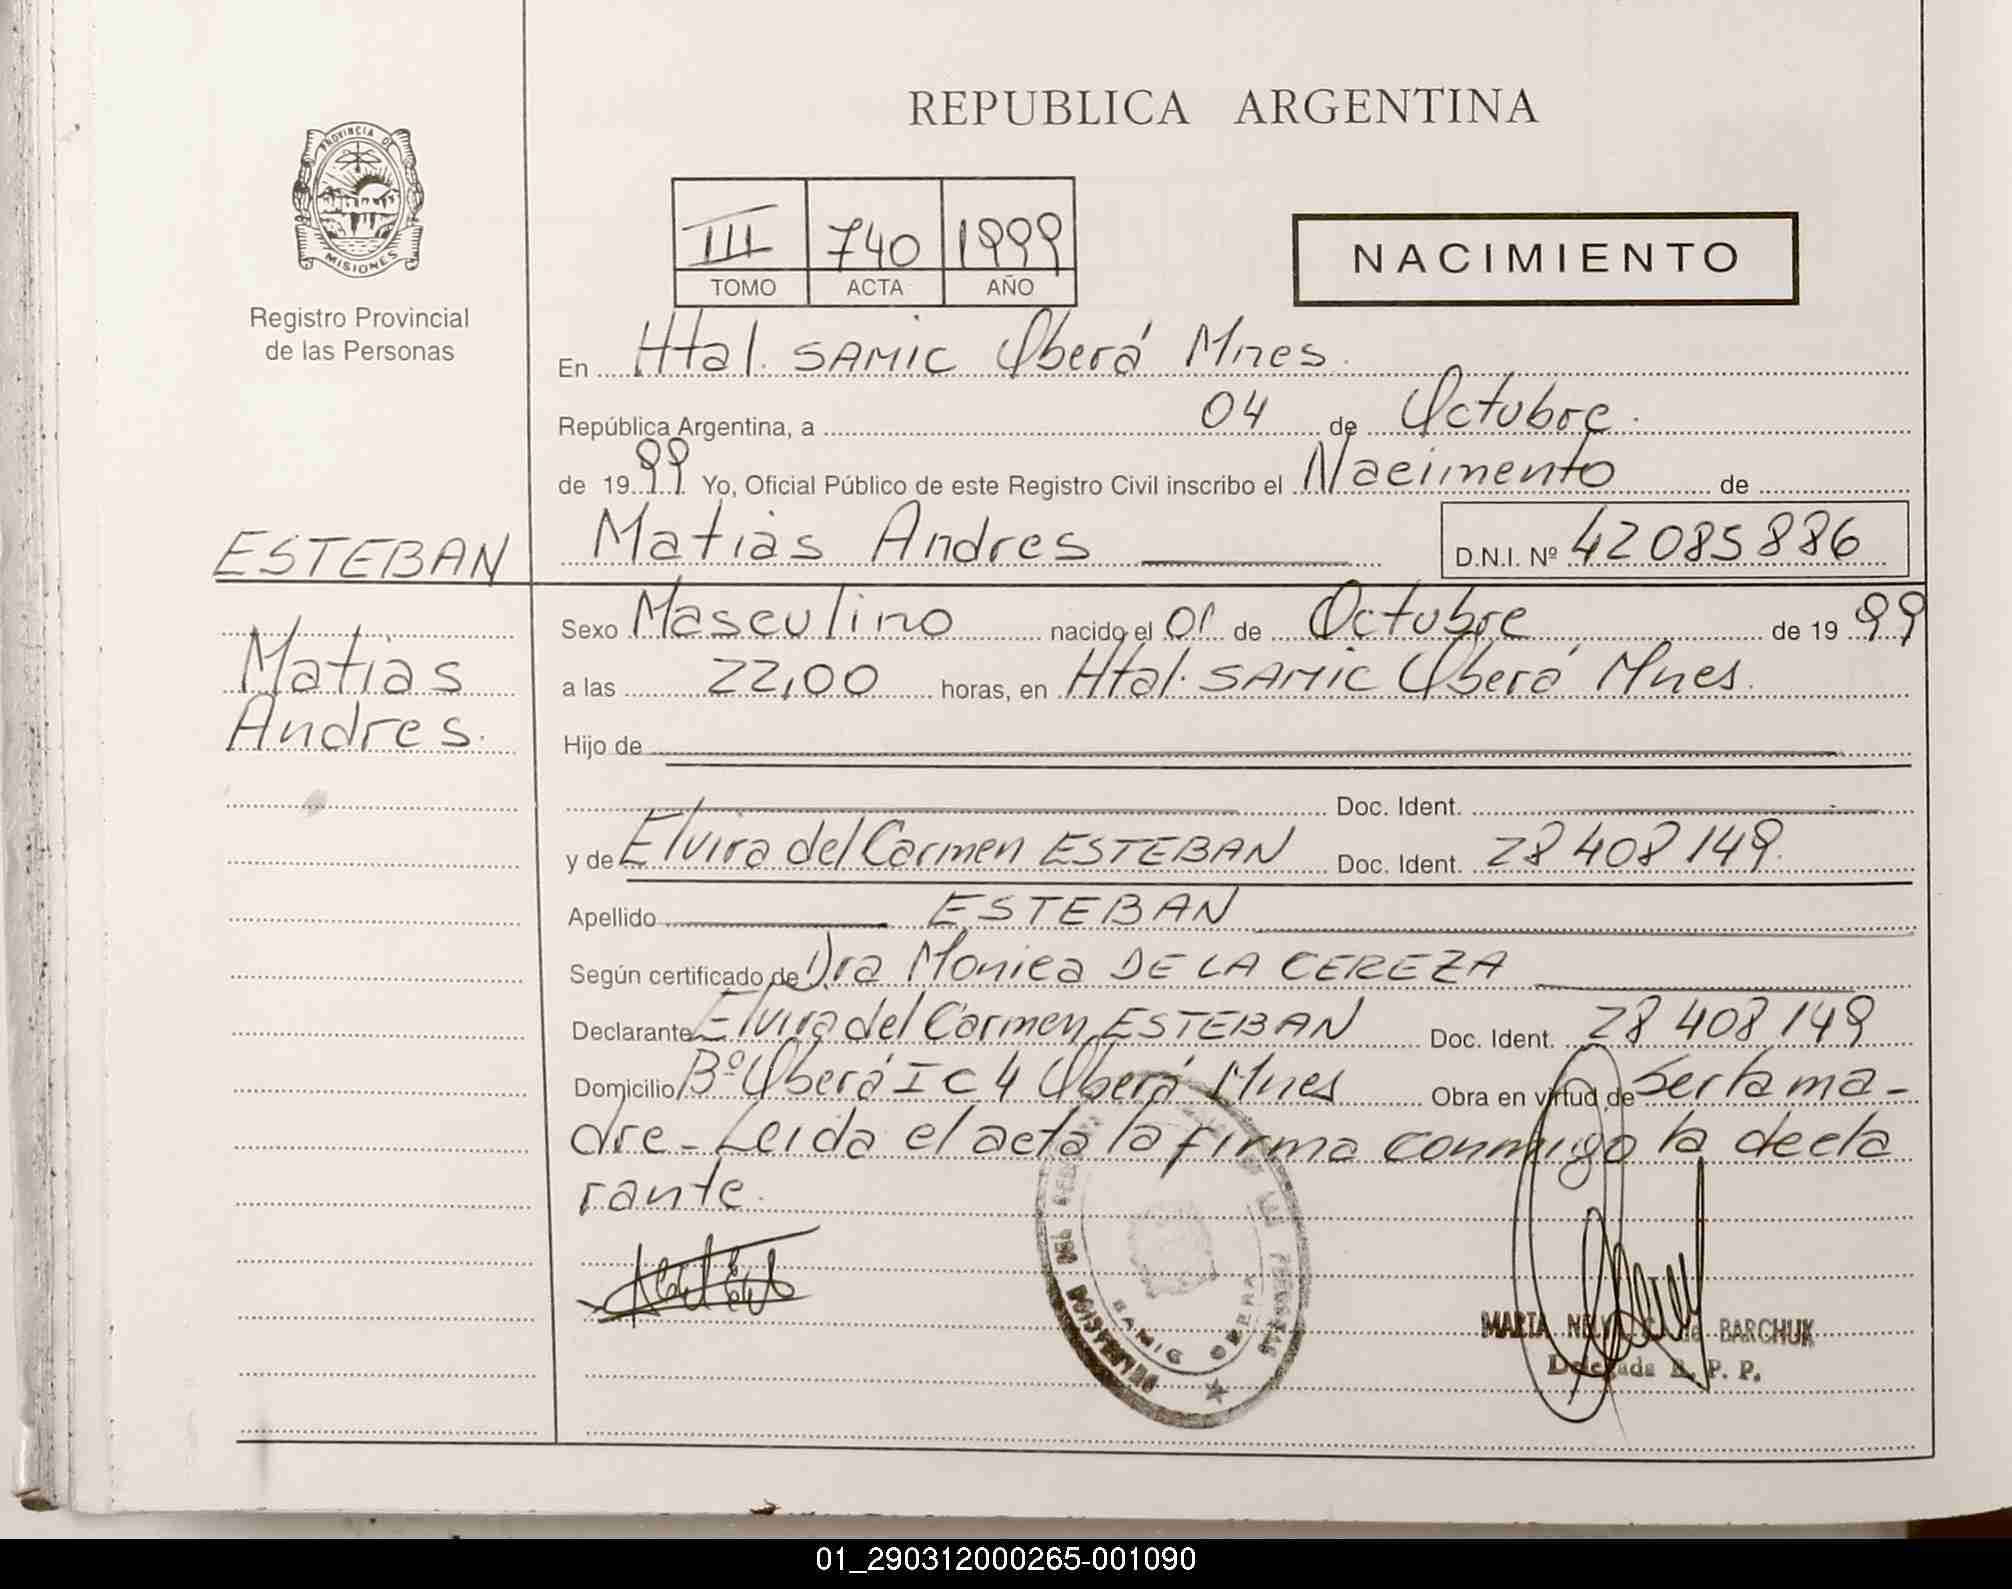 REPUBLICA ARGENTINA
PROVINCIA DE
MISIONES
Registro Provincial
de las Personas
III 740 1999
TOMO ACTA AÑO
NACIMIENTO
En Htal. SAMIC Oberá Mnes.
República Argentina, a 04 de Octubre.
de 1999 Yo, Oficial Público de este Registro Civil inscribo el Nacimento de
ESTEBAN Matias Andres D.N.I. Nº 42085886
Matias
Andres.
Sexo Masculino nacido el 01 de Octubre de 1999
a las 22,00 horas, en Htal. SAMIC Oberá Mnes.
Hijo de
Doc. Ident.
y de Elvira del Carmen ESTEBAN Doc. Ident. 28408149.
Apellido ESTEBAN
Según certificado de Dra Monica DE LA CEREZA
Declarante Elvira del Carmen ESTEBAN Doc. Ident. 28408149
Domicilio Bº Oberá I C 4 Oberá Mnes Obra en virtud de ser la ma-
dre - Leida el acta la firma conmigo la decla
rante.
SAMIC OBERA
MARTA NELY de BARCHUK
Delegada R. P. P.
01_290312000265-001090